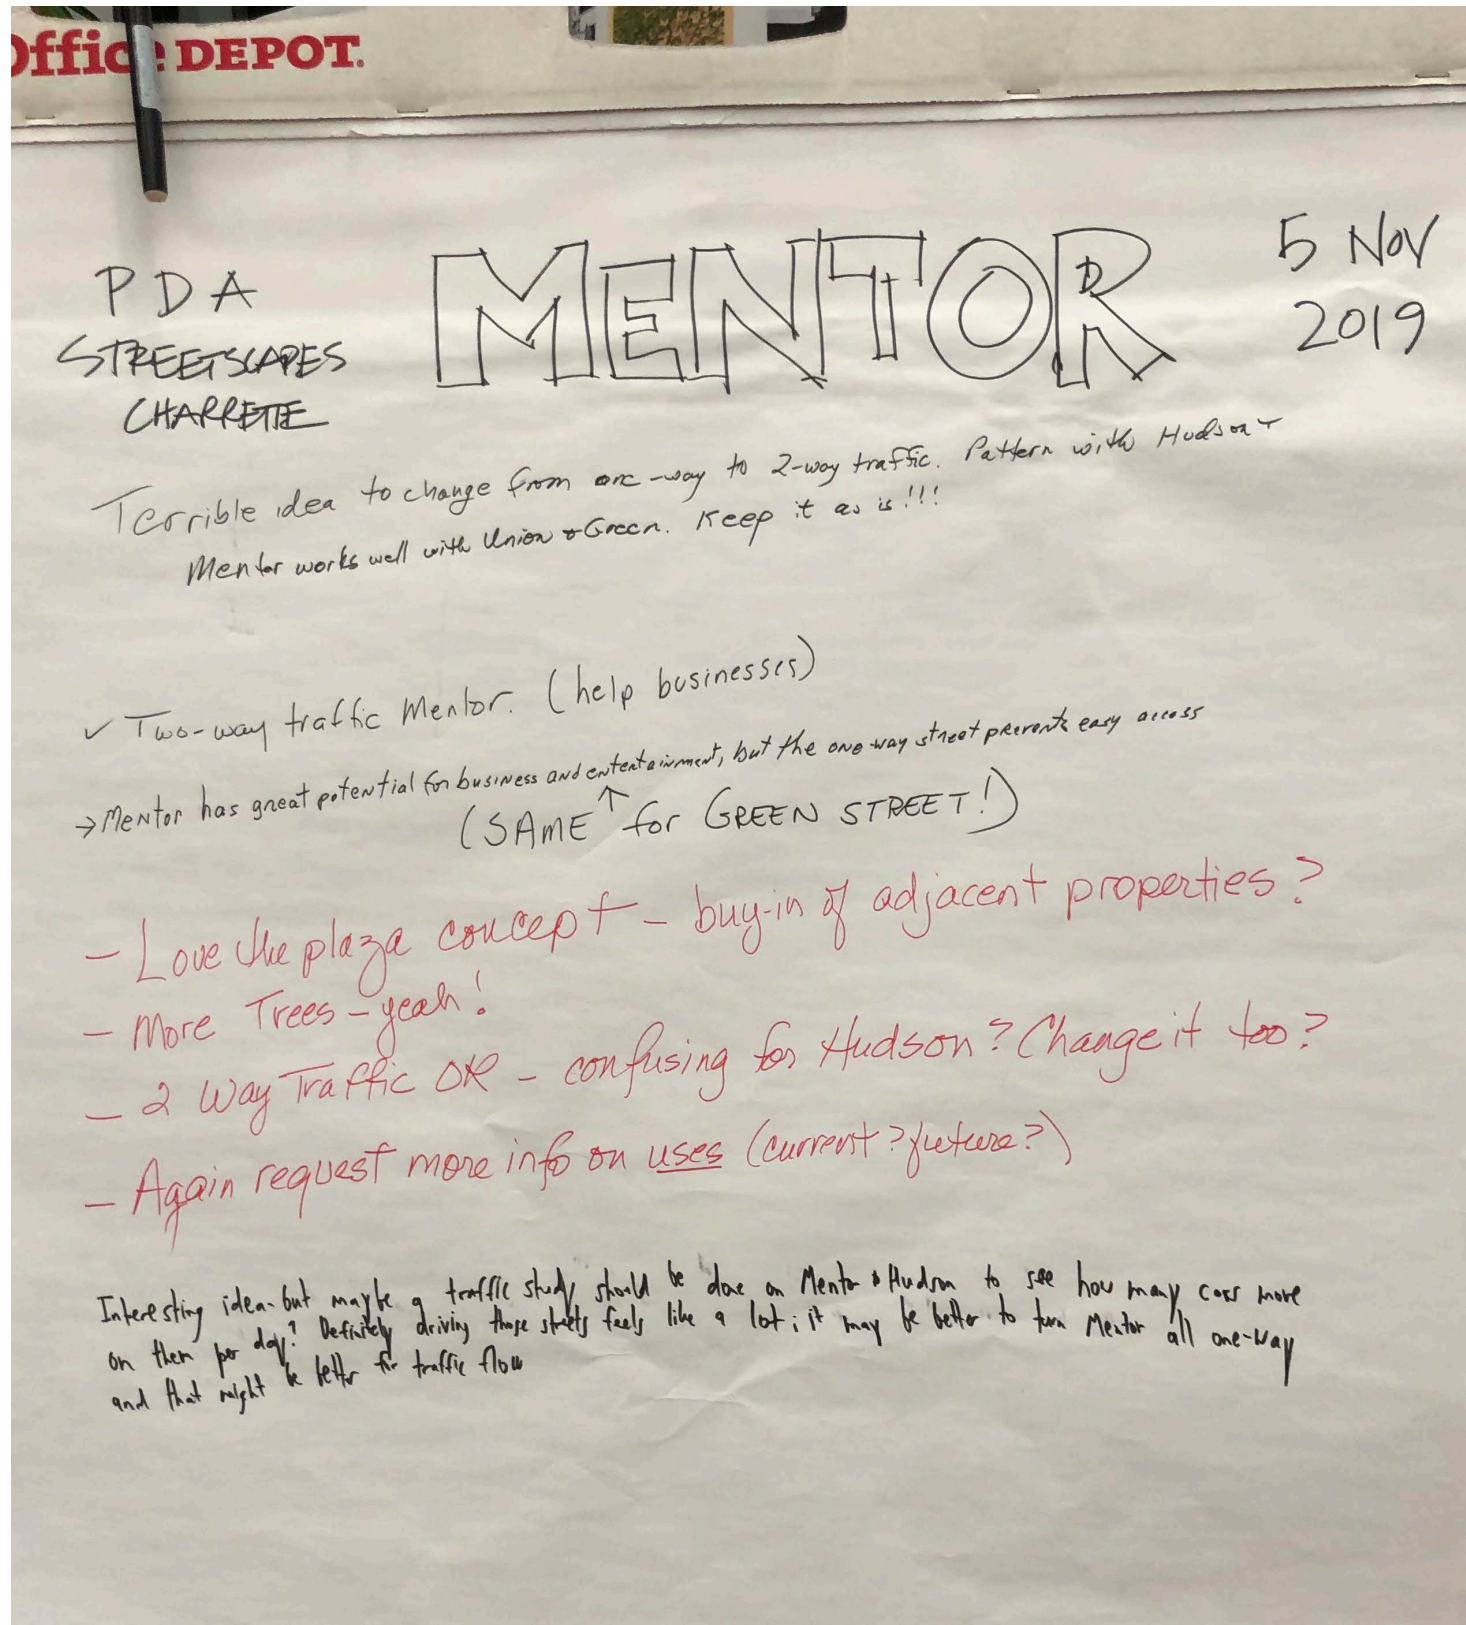 Office DEPOT.
PDA
STREETSCAPES
CHARRETTE
MENTOR
5 NOV
2019
Terrible idea to change from one-way to 2-way traffic. Pattern with Hudson +
Mentor works well with Union & Green. Keep it as is!!!
✓ Two-way traffic Mentor. (help businesses)
→ Mentor has great potential for business and entertainment, but the one-way street prevents easy access
(SAME ↑ for GREEN STREET!)
- Love the plaza concept - buy-in of adjacent properties?
- More Trees - yeah!
- 2 Way Traffic OK - confusing for Hudson? Change it too?
- Again request more info on uses (current? future?)
Interesting idea - but maybe a traffic study should be done on Mentor & Hudson to see how many cars move
on them per day? Definitely driving those streets feels like a lot; it may be better to turn Mentor all one-way
and that might be better for traffic flow